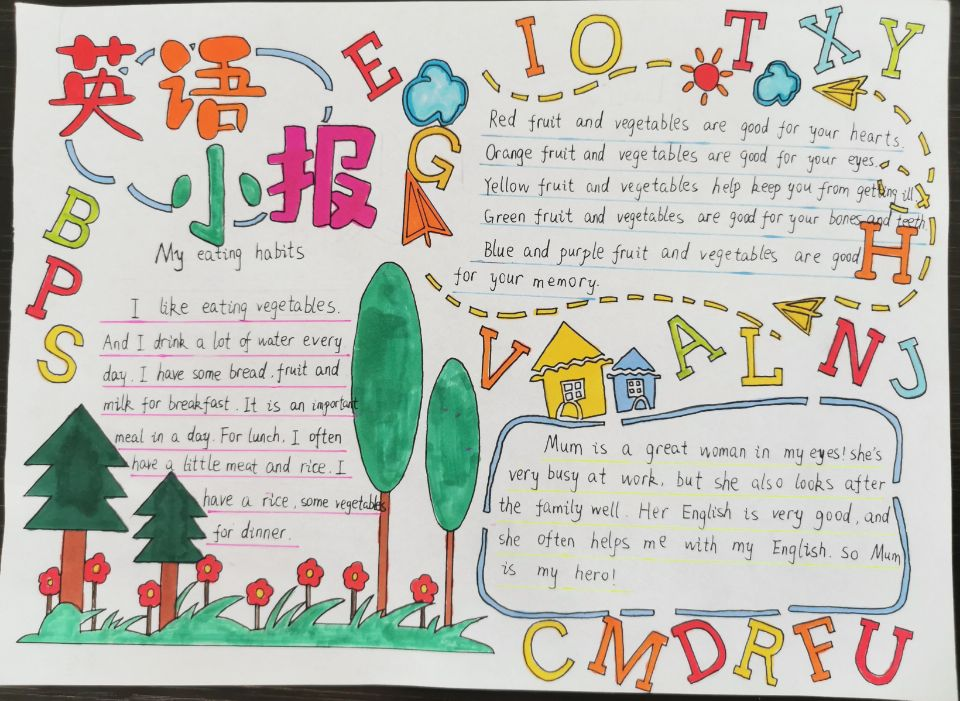 英语
小报
E
I
O
T
X
Y
G
B
P
S
My eating habits
I like eating vegetables.
And I drink a lot of water every
day. I have some bread, fruit and
milk for breakfast. It is an important
meal in a day. For lunch, I often
have a little meat and rice. I
have a rice, some vegetables
for dinner.
Red fruit and vegetables are good for your hearts.
Orange fruit and vegetables are good for your eyes.
Yellow fruit and vegetables help keep you from getting ill.
Green fruit and vegetables are good for your bones and teeth.
Blue and purple fruit and vegetables are good
for your memory.
H
V
A
L
N
J
Mum is a great woman in my eyes! she's
very busy at work, but she also looks after
the family well. Her English is very good, and
she often helps me with my English. so Mum
is my hero!
C
M
D
R
F
U